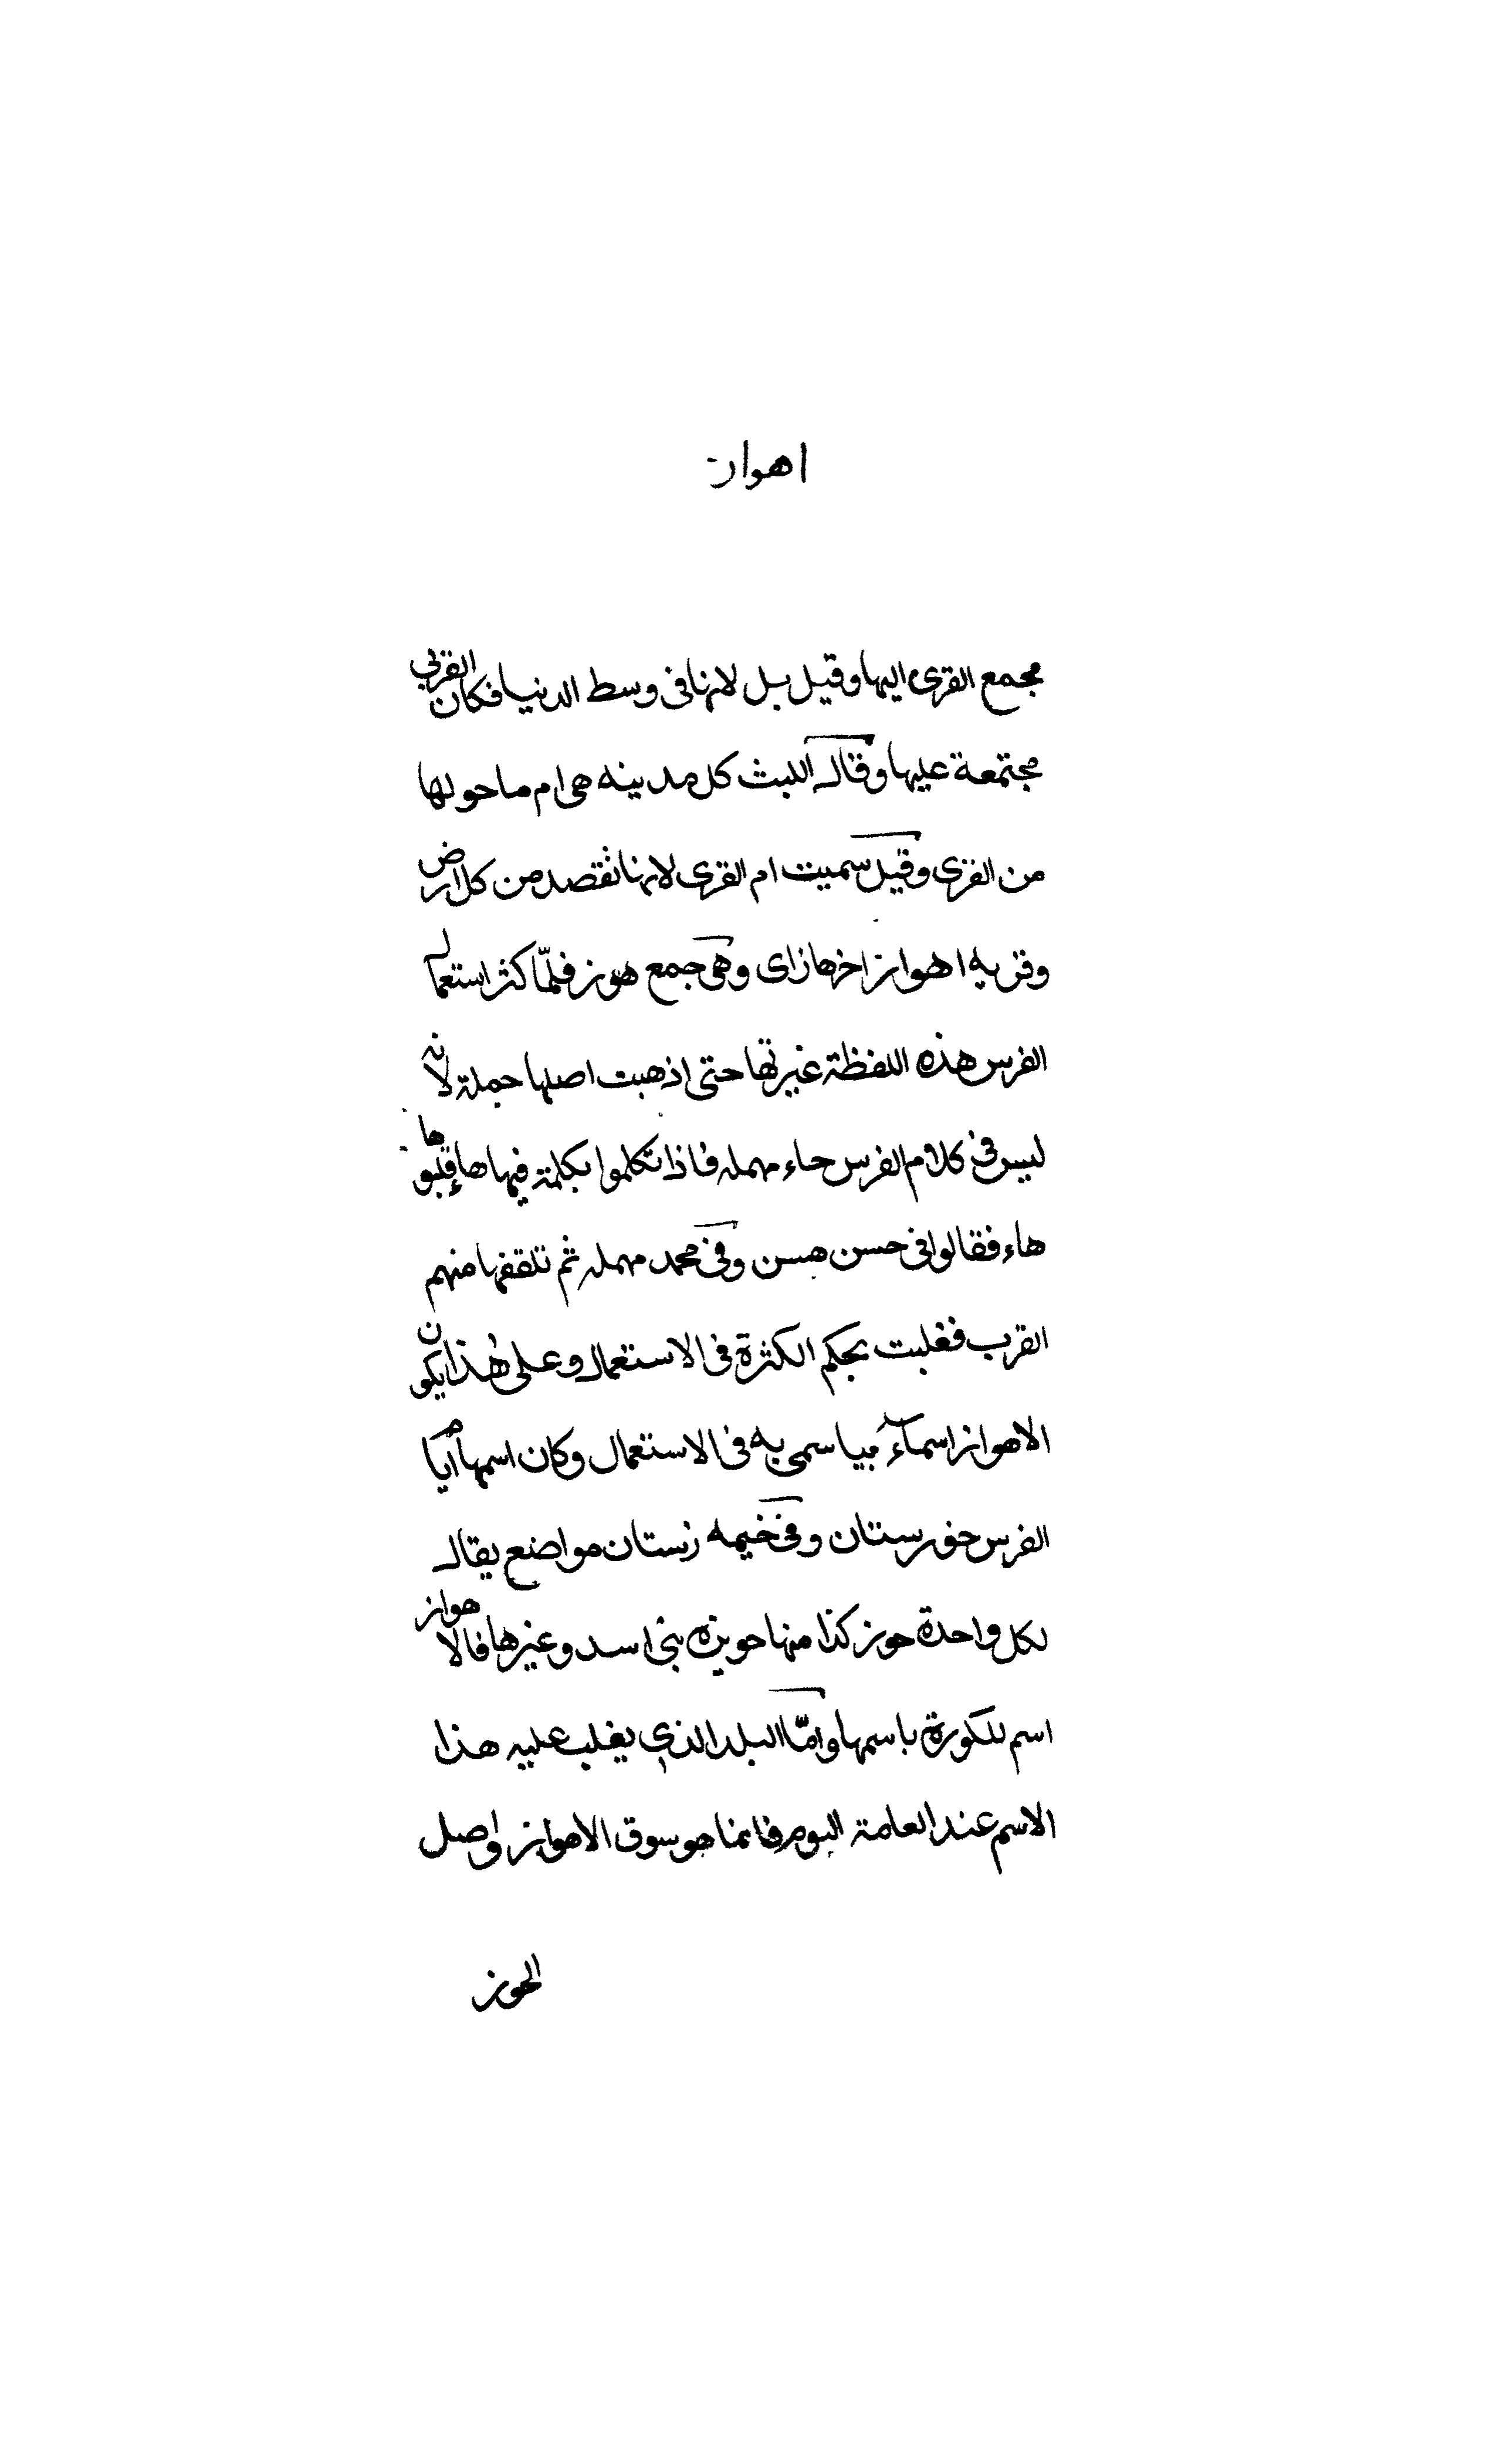 اهواز
مجمع القرى اليها وقيل بل لانها فى وسط الدنيا فكان القرى
مجتمعة عليها وقال الليث كل مدينه هى ام ما حولها
من القرى وقيل سميت ام القرى لانها تقصد من كل ارض
وقريه اهواز اخرها زاى وهى جمع هوز فلمّا كثر استعمال
الفرس هذه اللفظة غيرتها حتى اذهبت اصلها جملة لانه
ليس فى كلام الفرس حاء مهمله فاذا تكلموا بكلمة فيها هاء قلبوها
هاء فقالوا فى حسن هسن وفى محمد مهمد ثم تلقفها منهم
القرب فغلبت بحكم الكثرة فى الاستعمال وعلى هذا يكون
الاهواز اسماء سمى به فى الاستعمال وكان اسمها ايام
الفرس خورستان وفى زستان مواضع يقال
لكل واحدة حوز كذا منها حويزه بنى اسد وغيرها فالاهواز
اسم للكورة باسمها وامّا البلد الذى يغلب عليه هذا
الاسم عند العامة اليوم فانما هو سوق الاهواز واصل
الحوز